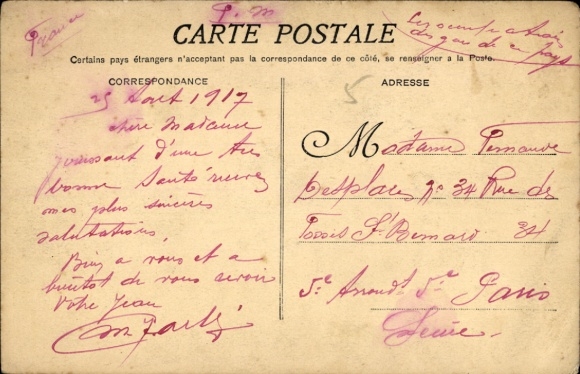 France
CARTE POSTALE
Certains pays étrangers n'acceptant pas la correspondance de ce côté, se renseigner à la Poste.
CORRESPONDANCE
ADRESSE
25 Aout 1917
chère Madame
Jouissant d'une très
bonne Santé recevez
mes plus sincères
salutations
Bien a vous et a
bientot de vous revoir
Votre
Madame
Desplaces No 34 Rue de
Fossés St Bernard 34
5e Arrondt 5e Paris
Seine